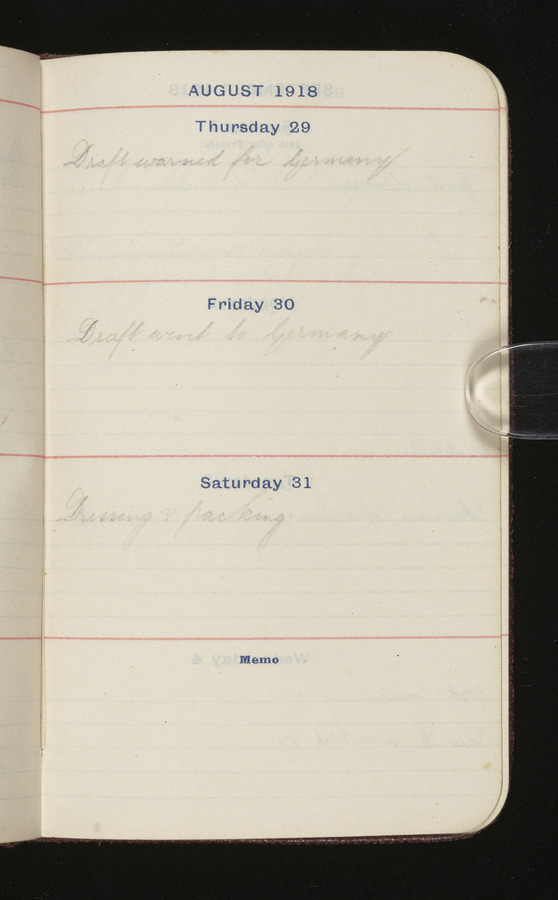 AUGUST 1918
Thursday 29
Draft warned for Germany
Friday 30
Draft went to Germany
Saturday 31
Dressing & packing
Memo